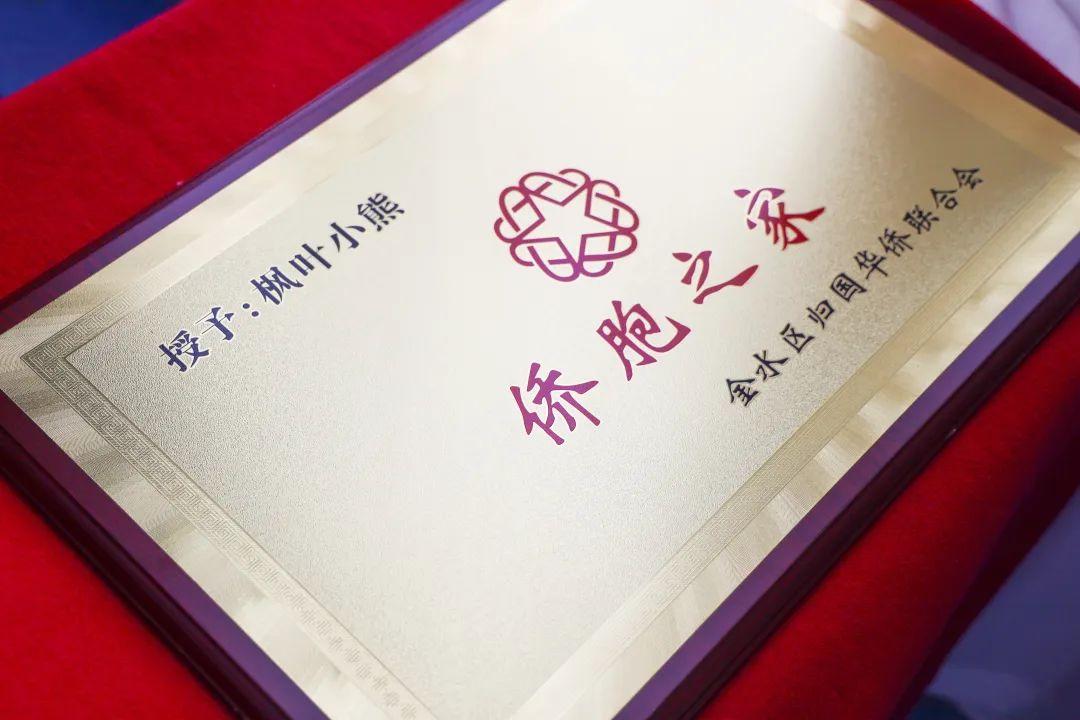 授予:枫叶小熊
侨胞之家
金水区归国华侨联合会